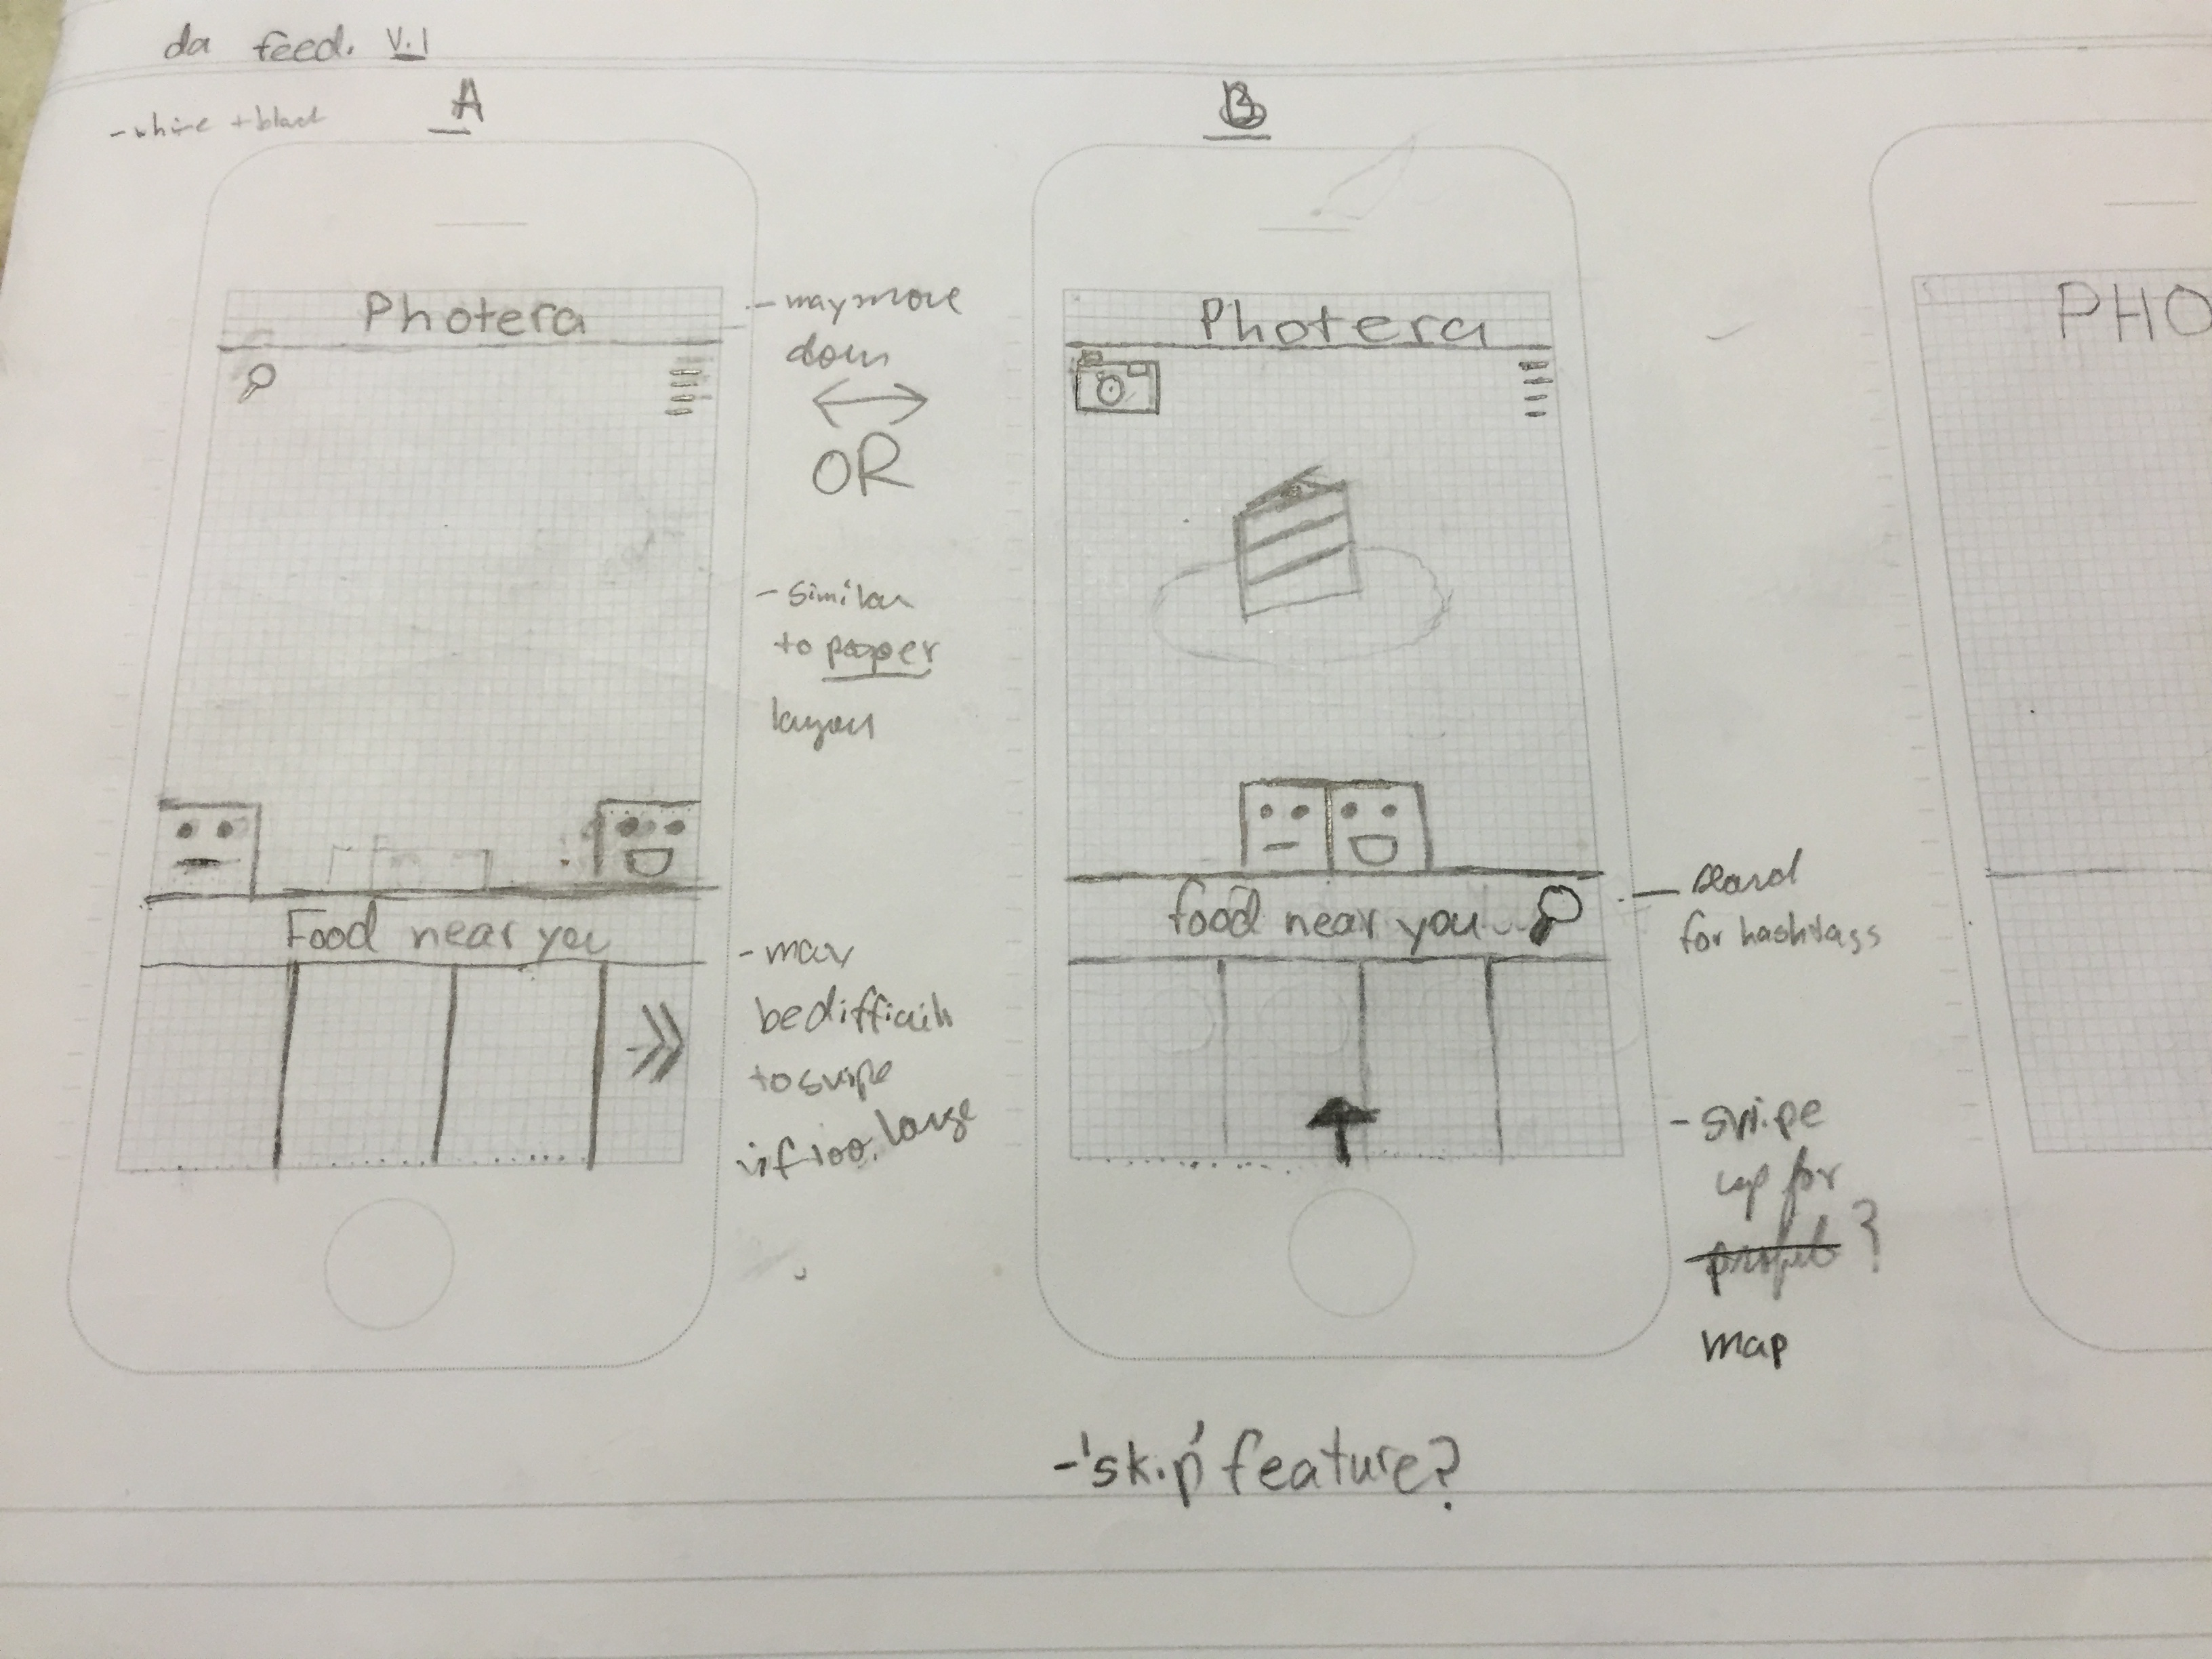 da feed. V.1
A
B
- white + black
Photera
- may move
down
OR
- Similar
to paper
layout
Food near you
- may
be difficult
to swipe
if too large
Photera
food near you
- search
for hashtags
- swipe
up for
profile ?
map
- 'skip' feature?
PHO